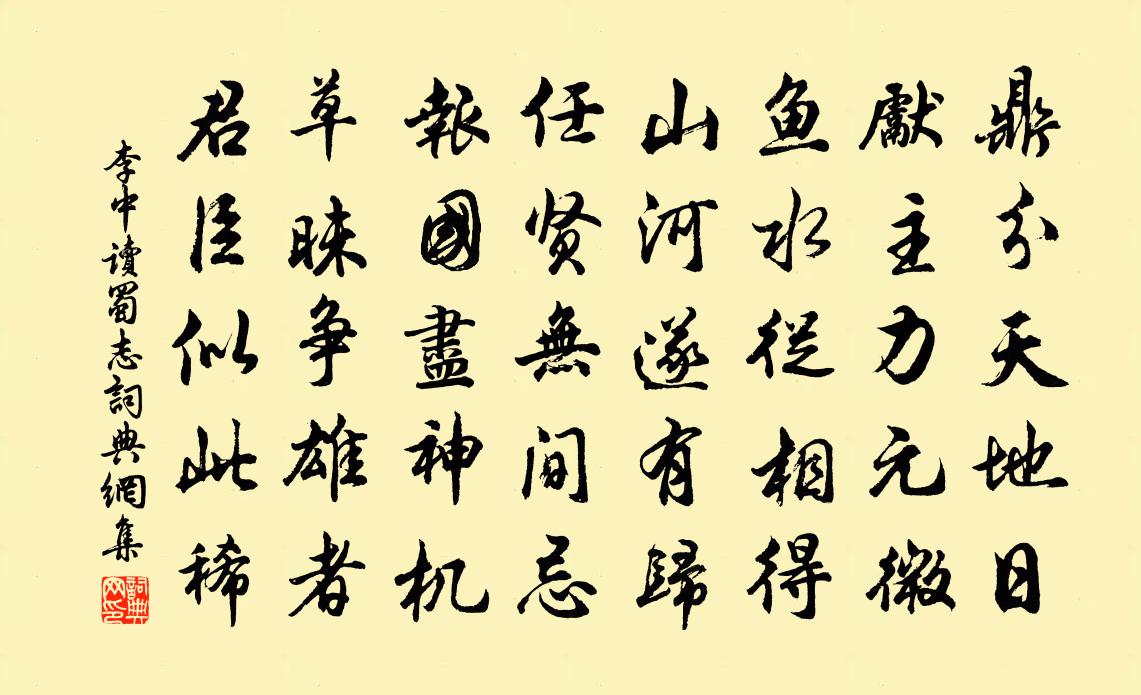 鼎分天地日
獻主力元微
鱼水從相得
山河遂有歸
任贤無間忌
報國盡神机
草昧争雄者
君臣似此稀
李中讀蜀志詞典網集
詞典网印